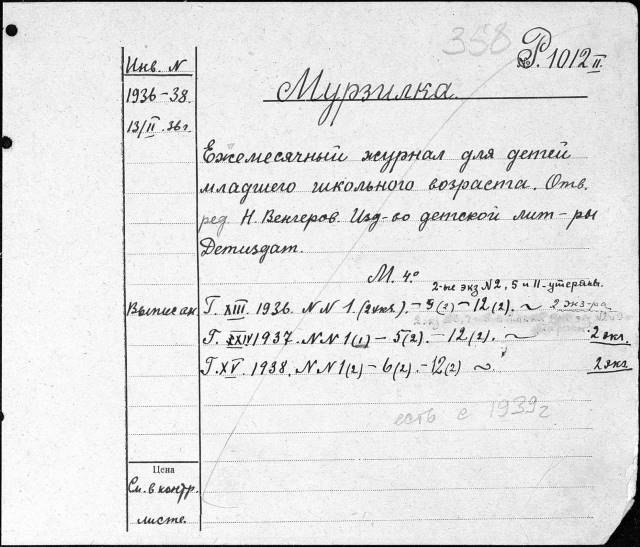 358
Р. 1012 II.
Инв. N
1936-38.
13/II. 36г.
Мурзилка.
Ежемесячный журнал для детей
младшего школьного возраста. Отв.
ред. Н. Венгеров. Изд-во детской лит-ры
Детиздат.
М. 4°
2-ые экз N2, 5 и 11-утеряны.
Выписан.
Г. XIII. 1936. N N 1. (2экз). -5(2) -12(2). ~ 2 экз-ра
Г. XIV 1937. N N 1(1) - 5(2). -12(2). ~ 2 экз.
Г. XV. 1938. N N 1(2) - 6(2). -12(2) ~. 2 экз
есть с 1939г
Цена
См. в контр.
листе.